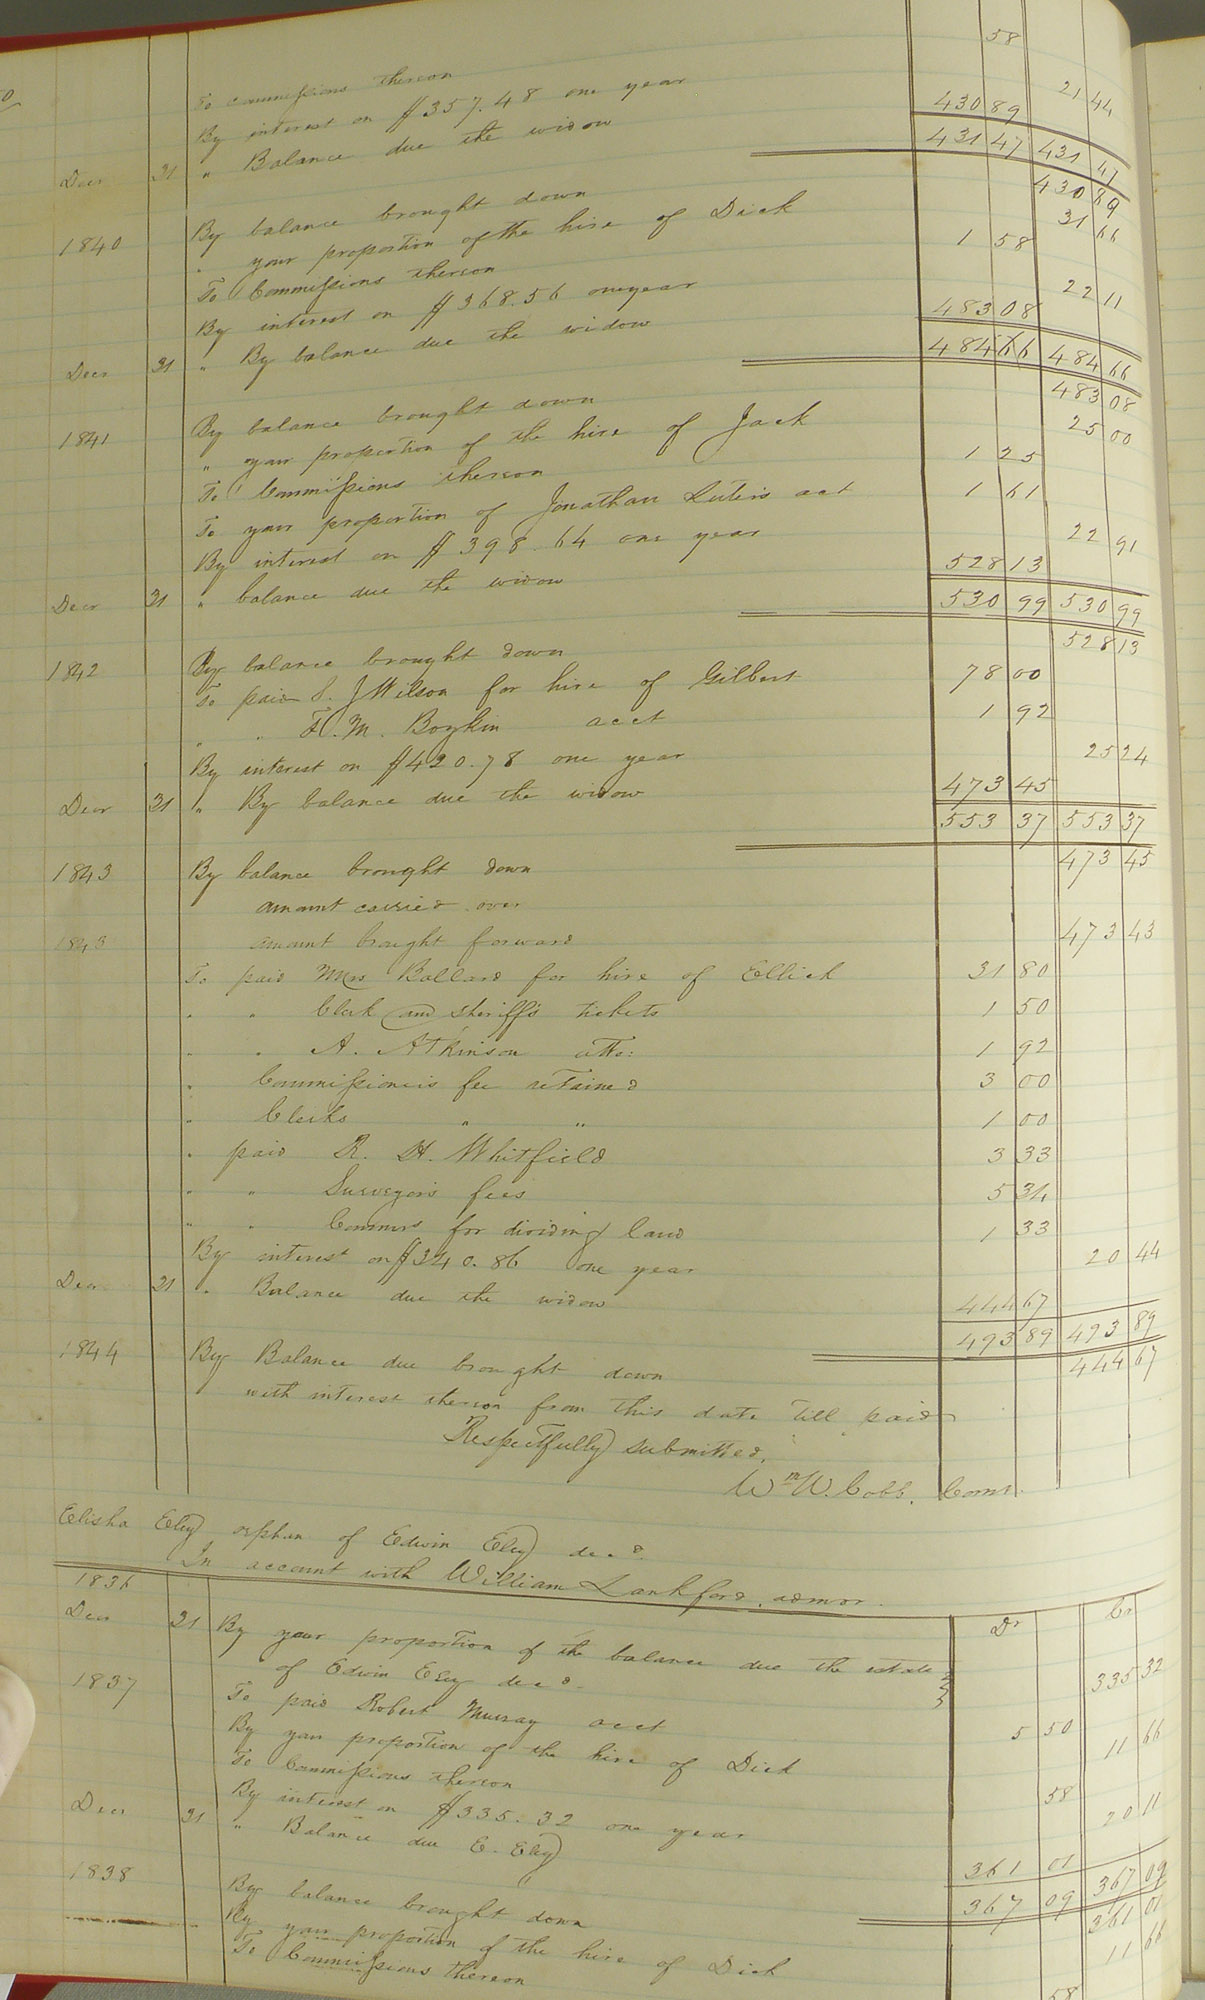 58
To commissions thereon
By interest on $357.48 one year 21 44
Decr 31 " Balance due the widow 430 89
431 47 431 47
1840 By balance brought down 430 89
" your proportion of the hire of Dick 31 66
To Commissions thereon 1 58
By interest on $368.56 one year 22 11
Decr 31 " By balance due the widow 483 08
484 66 484 66
1841 By balance brought down 483 08
" your proportion of the hire of Jack 25 00
To Commissions thereon 1 25
To your proportion of Jonathan Luter's act 1 61
By interest on $398.64 one year 22 91
Decr 31 " balance due the widow 528 13
530 99 530 99
1842 By balance brought down 528 13
To paid J. J Wilson for hire of Gilbert 78 00
" " F. M. Boykin acct 1 92
By interest on $420.78 one year 25 24
Decr 31 " By balance due the widow 473 45
553 37 553 37
1843 By balance brought down 473 45
amount carried over
1843 amount brought forward 473 43
To paid Mrs Ballard for hire of Ellick 31 80
" " Clerk and sheriff's tickets 1 50
" " A. Atkinson atto: 1 92
" Commissioners fee retained 3 00
" Clerks " " 1 00
" paid R. H. Whitfield 3 33
" " Surveyors fees 5 34
" " Commrs for dividing land 1 33
By interest on $340.86 one year 20 44
Decr 31 " Balance due the widow 444 67
493 89 493 89
1844 By Balance due brought down 444 67
with interest thereon from this date till paid
Respectfully submitted,
Wm W. Cobb, Comr.
Elisha Eley orphan of Edwin Eley decd.
In account with William Lankford, admor.
1836 Dr Cr
Decr 31 By your proportion of the balance due the estate
of Edwin Eley decd. 335 32
1837 To paid Robert Murray acct 5 50
By your proportion of the hire of Dick 11 66
To Commissions thereon 58
By interest on $335.32 one year 20 11
Decr 31 " Balance due E. Eley 361 01
367 09 367 09
1838 By balance brought down 361 01
By your proportion of the hire of Dick 11 66
To Commissions thereon 58